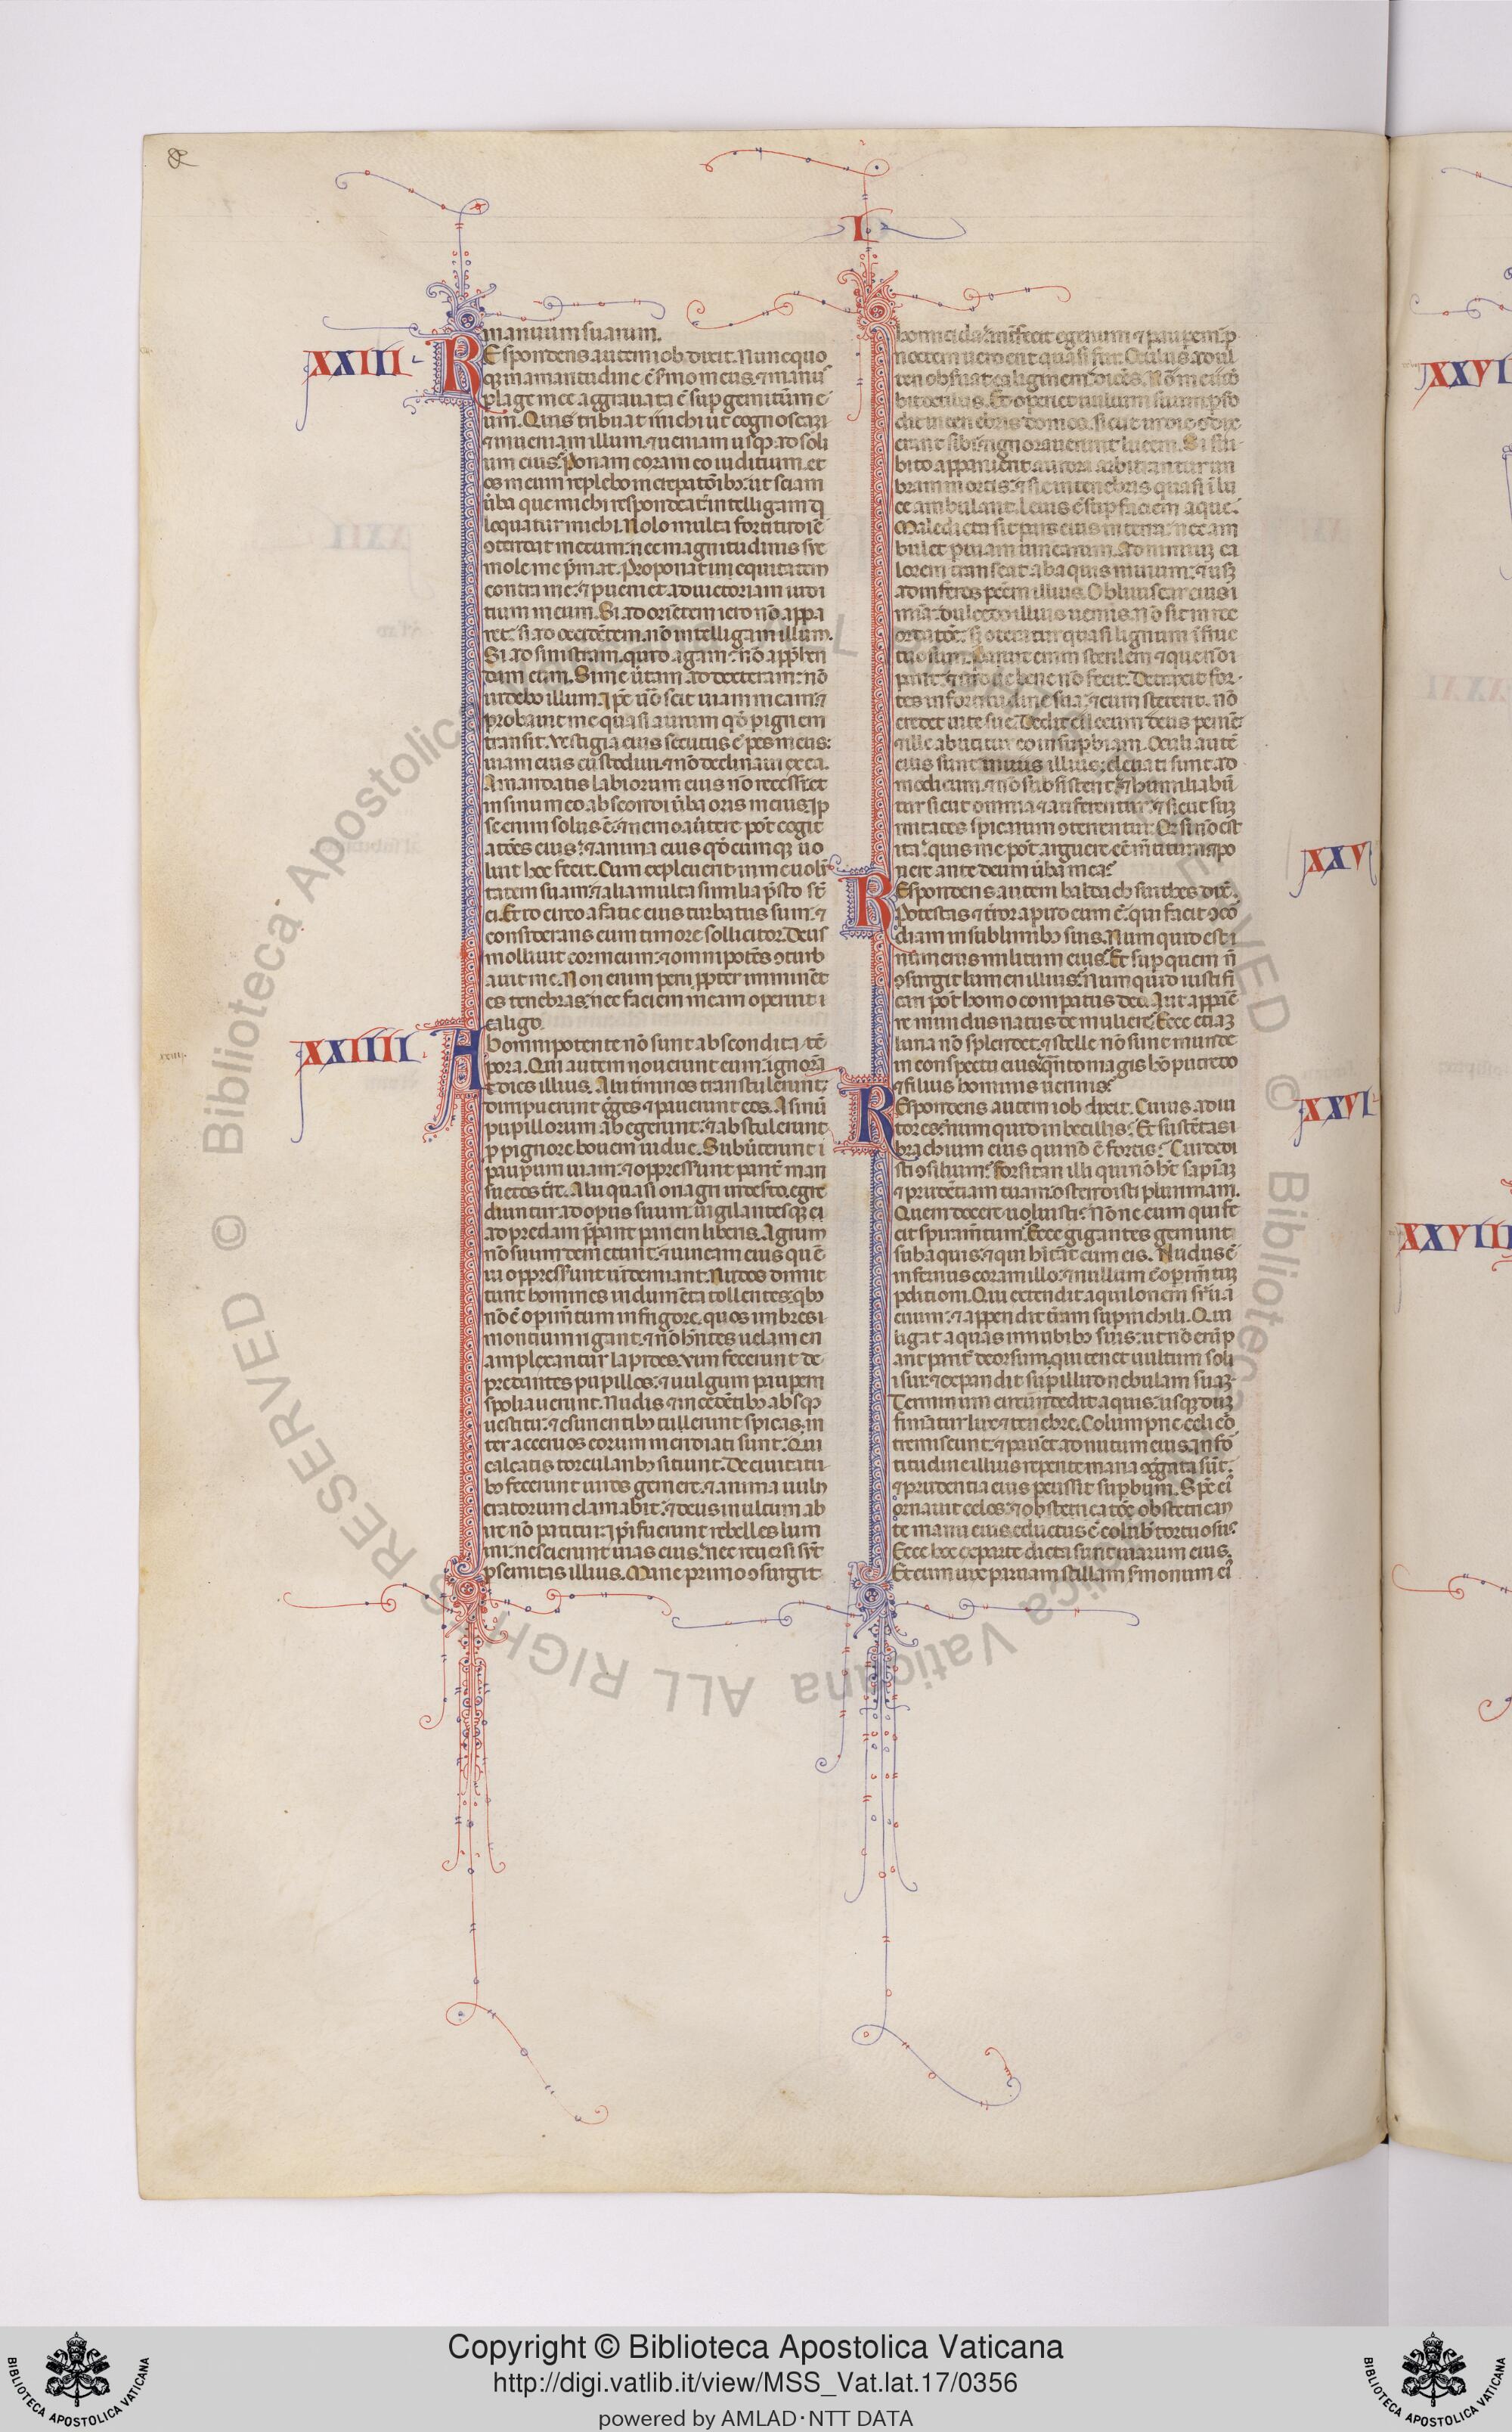 I
XXIII
manuum suarum.
REspondens autem iob dixit. Nunc quo
qꝫ in amaritudine ē ẜmo meus. ⁊ manꝰ
plage mee aggrauata ē suꝑ gemitum me
um. Quis tribuat m̄ichi ut cognoscam
⁊ inueniam illum. ⁊ ueniam usqꝫ ad soli
um eius. Ponam coram eo iuditium. et
os meum replebo increpatōibꝫ: ut sciam
u̇ba que michi respondeat: ⁊ intelligam qͥd
loquatur michi. Nolo multa fortitudīe
ꝯtendat mecum: nec magnitudinis sue
mole me p̄mat. Proponat̄ equitatem
contra me: ⁊ ꝑueniet ad uictoriam iudi
tium meum. Si ad oriētem iero nō appa
ret: si ad occidētem. nō intelligam illum.
Si ad sinistram. quid agam: nō app̄hen
dam eum. Si me ūtam ad dexteram: nō
uidebo illum. Ip̄e ū scit uiam meam: ⁊
probauit me quasi aurum qd̄ ꝑ ignem
transit. Vestigia eius secutus ē pes meus:
uiam eius custodiui. ⁊ nō declinaui ex ea.
A mandatis labiorum eius nō recessi: et
in sinu meo abscondi u̇ba oris eius. Ip
se enim solus ē: ⁊ nemo aūtere pōt cogit
atōes eius: ⁊ anima eius qd̄cumqꝫ uo
luit hoc fecit. Cum expleuerit in me uolū
tatem suam: ⁊ alia multa similia p̄sto sт̄
ei. Et id circo a facie eius turbatus sum: ⁊
considerans eum timore sollicitor. Deus
molliuit cor meum: ⁊ omnipotēs ꝯturb
auit me. Non enim perii ꝓpter imminēt
es tenebras: nec faciem meam operuit i
caligo.
XXIIII
Ab omnipotente nō sunt abscondita tē
pora. Qui autem nouerunt eum: ignorāt
dies illius. Alii t̄minos transtulerunt:
diripuerunt g̊ges ⁊ pauerunt eos. Asinū
pupillorum abegerunt: ⁊ abstulerunt
ꝓ pignore bouem uidue. Subūterunt
pauꝑum uiam: ⁊ oppresserunt parit̄ man
suetos t̄re. Alii quasi onagri in deserto. egre
diuntur ad opus suum: uigilantesqꝫ
ad predam p̄parant panem liberis. Agrum
nō suum demetunt: ⁊ uineam eius quē
ui oppresserunt uīdemiant. Nudos dimit
tunt homines indumēta tollentes: qͥbꝫ
nō ē opim̄tum in frigore. quos imbres
montium rigant: ⁊ nō hn̄tes uelamen
amplexantur lapides. Vim fecerunt de
predantes pupillos: ⁊ uulgum pauꝑem
spoliauerunt. Nudis ⁊ incedētibꝫ absqꝫ
uestitu: ⁊ esurientibꝫ tulerunt spicas: in
ter aceruos eorum meridiati sunt. Qui
calcatis torcularibꝫ sitiunt. De ciuitati
bꝫ fecerunt uiros gemere: ⁊ anima uuln̄
eratorum clamabit: ⁊ deus inultum ab
ire nō patitur. Ip̄i fuerunt rebelles lum
ini: nescierunt uias eius: nec reuersi sūt
ꝑ semitas illius. Mane primo ꝯsurgit
homicida: int̄ficit egenum ⁊ pauꝑem: ꝑ
noctem uero erit quasi fur. Oculus adul
teri obseruat caliginem: dicēs. Nō me uidē
bit oculus. Et operiet uultum suum. ꝑfo
dit in tenebris domos. sicut in die ꝯdixe
rant sibi: ⁊ ignorauerunt lucem. Si su
bito apparuerit aurora. arbitrantur um
bram mortis: ⁊ sic in tenebris quasi ī lu
ce ambulant. Leuis ē suꝑ faciem aque:
Maledicta sit pars eius in terra: nec am
bulet ꝑ uiam uinearum. Ad nimium ca
lorem transeat ab aquis niuium: ⁊ usqꝫ
ad inferos peccm̄ illius. Obliuiscatur eius
mia: dulcedo illius uermis. Nō sit in rec
ordatōe: sꝫ ꝯteratur quasi lignum īfruc
tuosum. Pauit enim sterilem ⁊ que nō
parit: ⁊ uidue bene nō fecit. Detraxit for
tes in fortitudine sua: ⁊ cum steterit. nō
credet uite sue. Dedit ei locum deus penitēt
⁊ ille abutitur eo in suꝑbiam. Oculi autē
eius sunt in uiis illius: eleuati sunt ad
modicum. ⁊ nō subsistent: ⁊ humiliabun̄
tur sicut omnia ⁊ auferentur: ⁊ sicut sum
mitates spicarum ꝯterentur. Qꝫ si nō est
ita: quis me pōt arguere eē m̄titum: ⁊ po
nere ante deum u̇ba mea?
XXV
REspondens autem baldach suithes dix̄.
Potestas ⁊ t̄ror apud eum ē: qui facit ꝯcō
diam in sublimibꝫ suis. Numquid est
num̄us militum eius? Et suꝑ quem nō
ꝯsurgit lumen illius? Numquid iustifi
cari pōt homo comparatus deo. Aut apparē
re mundus natus de muliere? Ecce etiam
luna nō splendet: ⁊ stelle nō sunt munde
in conspectu eius: qn̄to magis hō putredo
⁊ filius hominis uermis?
XXVI
REspondens autem iob dixit. Cuius adiu
tor es: numquid inbecillis? Et sustētas
brachium eius qui nō ē fortis? Cui dedi
sti ꝯsilium? Forsitan illi qui nō hēt sapiam
⁊ prudētiam tuam ostendisti plurimam.
Quem docere uoluisti? Nōne eum qui fe
cit spiramm̄tum? Ecce gigantes gemunt
sub aquis: ⁊ qui hītāt cum eis. Nudus ē
infernus coram illo: ⁊ nullum ē opim̄tum
ꝑditioni. Qui extendit aquilonem suꝑ ua
cuum: ⁊ appendit t̄ram suꝑ nichili. Qui
ligat aquas in nubibꝫ suis: ut nō erūp
ant parit̄ deorsum. qui tenet uultum soli
i sui: ⁊ expandit suꝑ illud nebulam suam.
Terminum circūdedit aquis: usqꝫ dum
finiatur lux ⁊ tenebre. Columpne celi cō
tremiscunt: ⁊ pauēt ad nutum eius. In for
titudine illius repente maria ꝯgͣgata sūt:
⁊ prudentia eius ꝑcussit suꝑbum. Sp̄c eiꝰ
ornauit celos: ⁊ obstetricatōe obstetrican
te manu eius eductus ē colub̄ tortuosus.
Ecce hec ex parte dicta sunt uiarum eius.
Et cum uix paruam stillam ẜmonum eiꝰ
XXVI
XXVIII
Copyright © Biblioteca Apostolica Vaticana
http://digi.vatlib.it/view/MSS_Vat.lat.17/0356
powered by AMLAD·NTT DATA
BIBLIOTECA APOSTOLICA VATICANA
BIBLIOTECA APOSTOLICA VATICANA
© Biblioteca Apostolica Vaticana ALL RIGHTS RESERVED